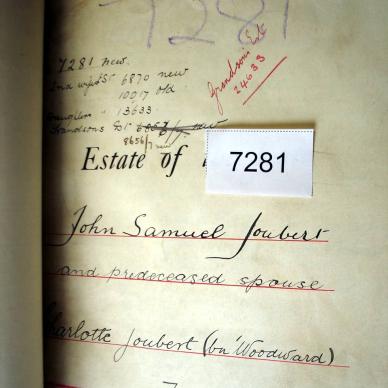 7281
7281 new.
2nd wife's Est. 6870 new
10017 old
Daughter 13633
Grandsons Est.
8656/7 new
Grandson's Estate
24633
Estate of
7281
John Samuel Joubert
and predeceased spouse
Charlotte Joubert (bn' Woodward)